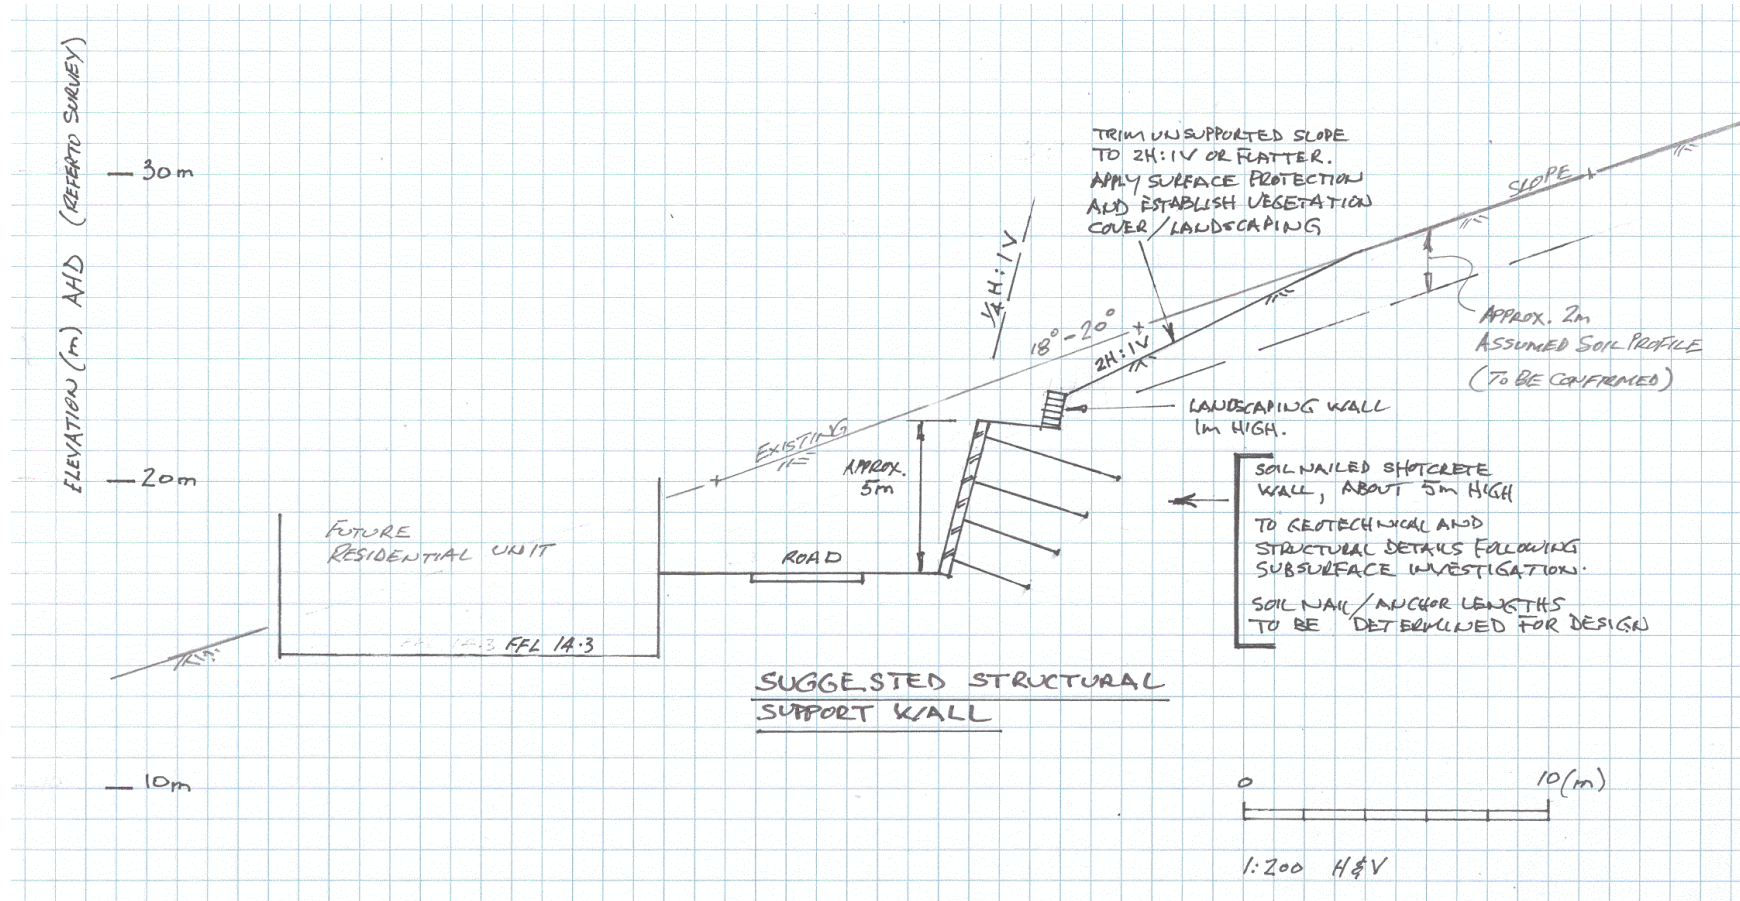 ELEVATION (m) AHD (REFER TO SURVEY)
30m
20m
10m
TRIM UNSUPPORTED SLOPE
TO 2H:1V OR FLATTER.
APPLY SURFACE PROTECTION
AND ESTABLISH VEGETATION
COVER/LANDSCAPING
SLOPE
1/4H:1V
18°-20°
2H:1V
APPROX. 2m
ASSUMED SOIL PROFILE
(TO BE CONFIRMED)
LANDSCAPING WALL
1m HIGH.
EXISTING
APPROX.
5m
SOIL NAILED SHOTCRETE
WALL, ABOUT 5m HIGH
TO GEOTECHNICAL AND
STRUCTURAL DETAILS FOLLOWING
SUBSURFACE INVESTIGATION.
SOIL NAIL/ANCHOR LENGTHS
TO BE DETERMINED FOR DESIGN
FUTURE
RESIDENTIAL UNIT
ROAD
FFL 14.3
SUGGESTED STRUCTURAL
SUPPORT WALL
0 10(m)
1:200 H&V